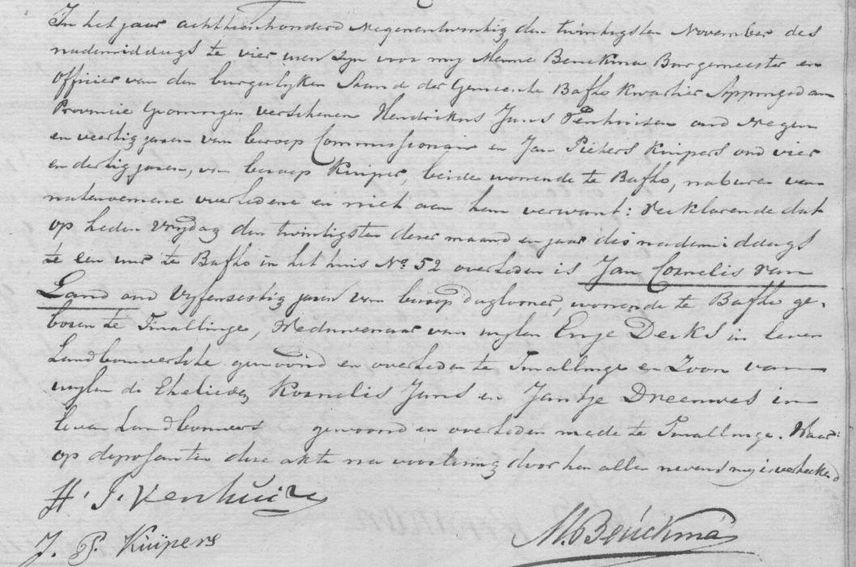 In het jaar achttienhonderd Negenentwintig den twintigsten November des
nademiddags te vier uren zijn voor mij Menne Beuckma Burgemeester en
Officier van den burgerlyken Stand der Gemeente Baflo kwartier Appingedam
Provincie Groningen verschenen Hendrikus Jans Venhuizen oud Negen
en veertig jaren van beroep Commissionair en Jan Pieters Kuipers oud vier
en dertig jaren, van beroep Kuiper, beide wonende te Baflo, naburen van
natenoemene overledene en niet aan hem verwant: verklarende dat
op heden Vrijdag den twintigsten dezer maand en jaar des nademiddags
te een uur te Baflo in het huis No 52 overleden is Jan Cornelis van
Land oud Vyfensestig jaren van beroep dagloner, wonende te Baflo ge-
boren te Tinallinge, Weduwenaar van wylen Enje Derks in leven
Landbouwersche gewoond en overleden te Tinallinge en Zoon van
wylen de Ehelieden Kornelis Jans en Jantje Dreewes in
leven Landbouwers gewoond en overleden mede te Tinallinge. Waar
op deposanten deze akte na voorlezing door hen allen nevens mij is getekend
H. J. Venhuizen
J. P. Kuipers
M. Beuckma